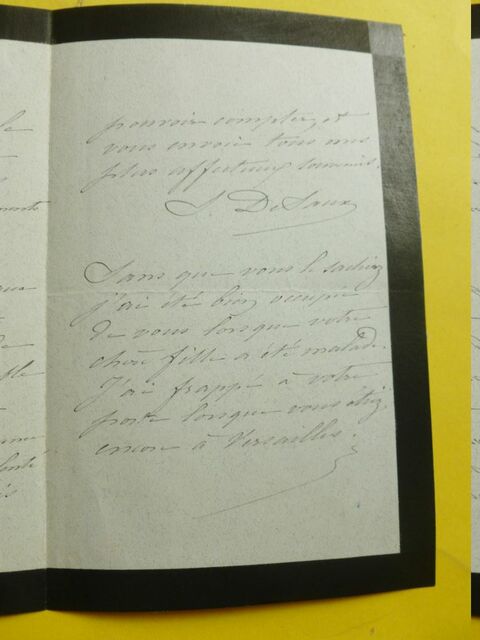 pouvoir compter, et
vous envoie tous mes
plus affectueux souvenirs.
J. De Saux
Sans que vous le sachiez
j'ai été bien occupée
de vous lorsque votre
chère fille a été malade.
J'ai frappé à votre
porte lorsque vous étiez
encore à Versailles.